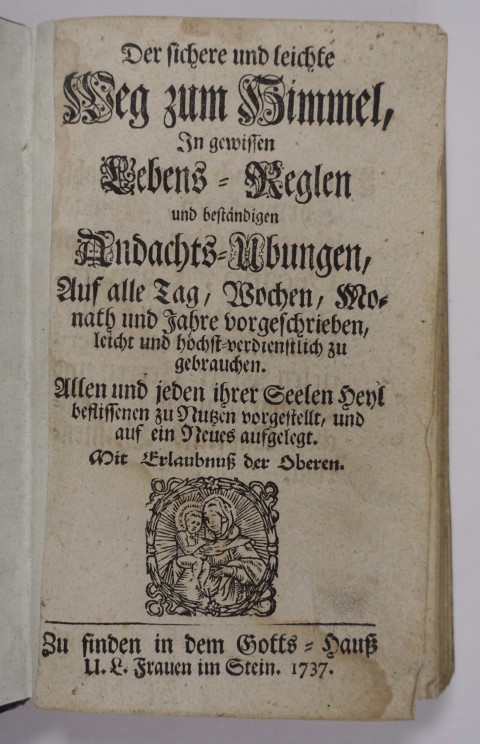 Der sichere und leichte
Weg zum Himmel,
In gewissen
Lebens-Reglen
und beständigen
Andachts-Ubungen,
Auf alle Tag, Wochen, Mo-
nath und Jahre vorgeschrieben,
leicht und höchst-verdienstlich zu
gebrauchen.
Allen und jeden ihrer Seelen Heyl
beflissenen zu Nutzen vorgestellt, und
auf ein Neues aufgelegt.
Mit Erlaubnuß der Oberen.
Zu finden in dem Gotts-Hauß
U. L. Frauen im Stein. 1737.